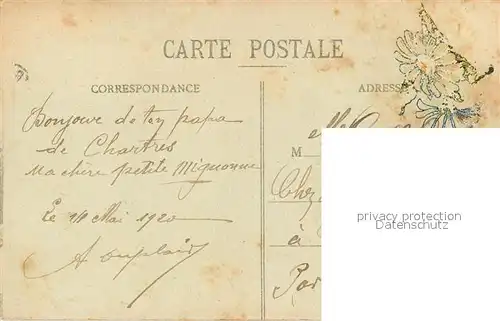 CARTE POSTALE
CORRESPONDANCE
ADRESSE
Bonjour de ton papa
de Chartres
Ma chère petite Mignonne
Le 14 Mai 1920
M elle
Chez
à
Par
privacy protection
Datenschutz